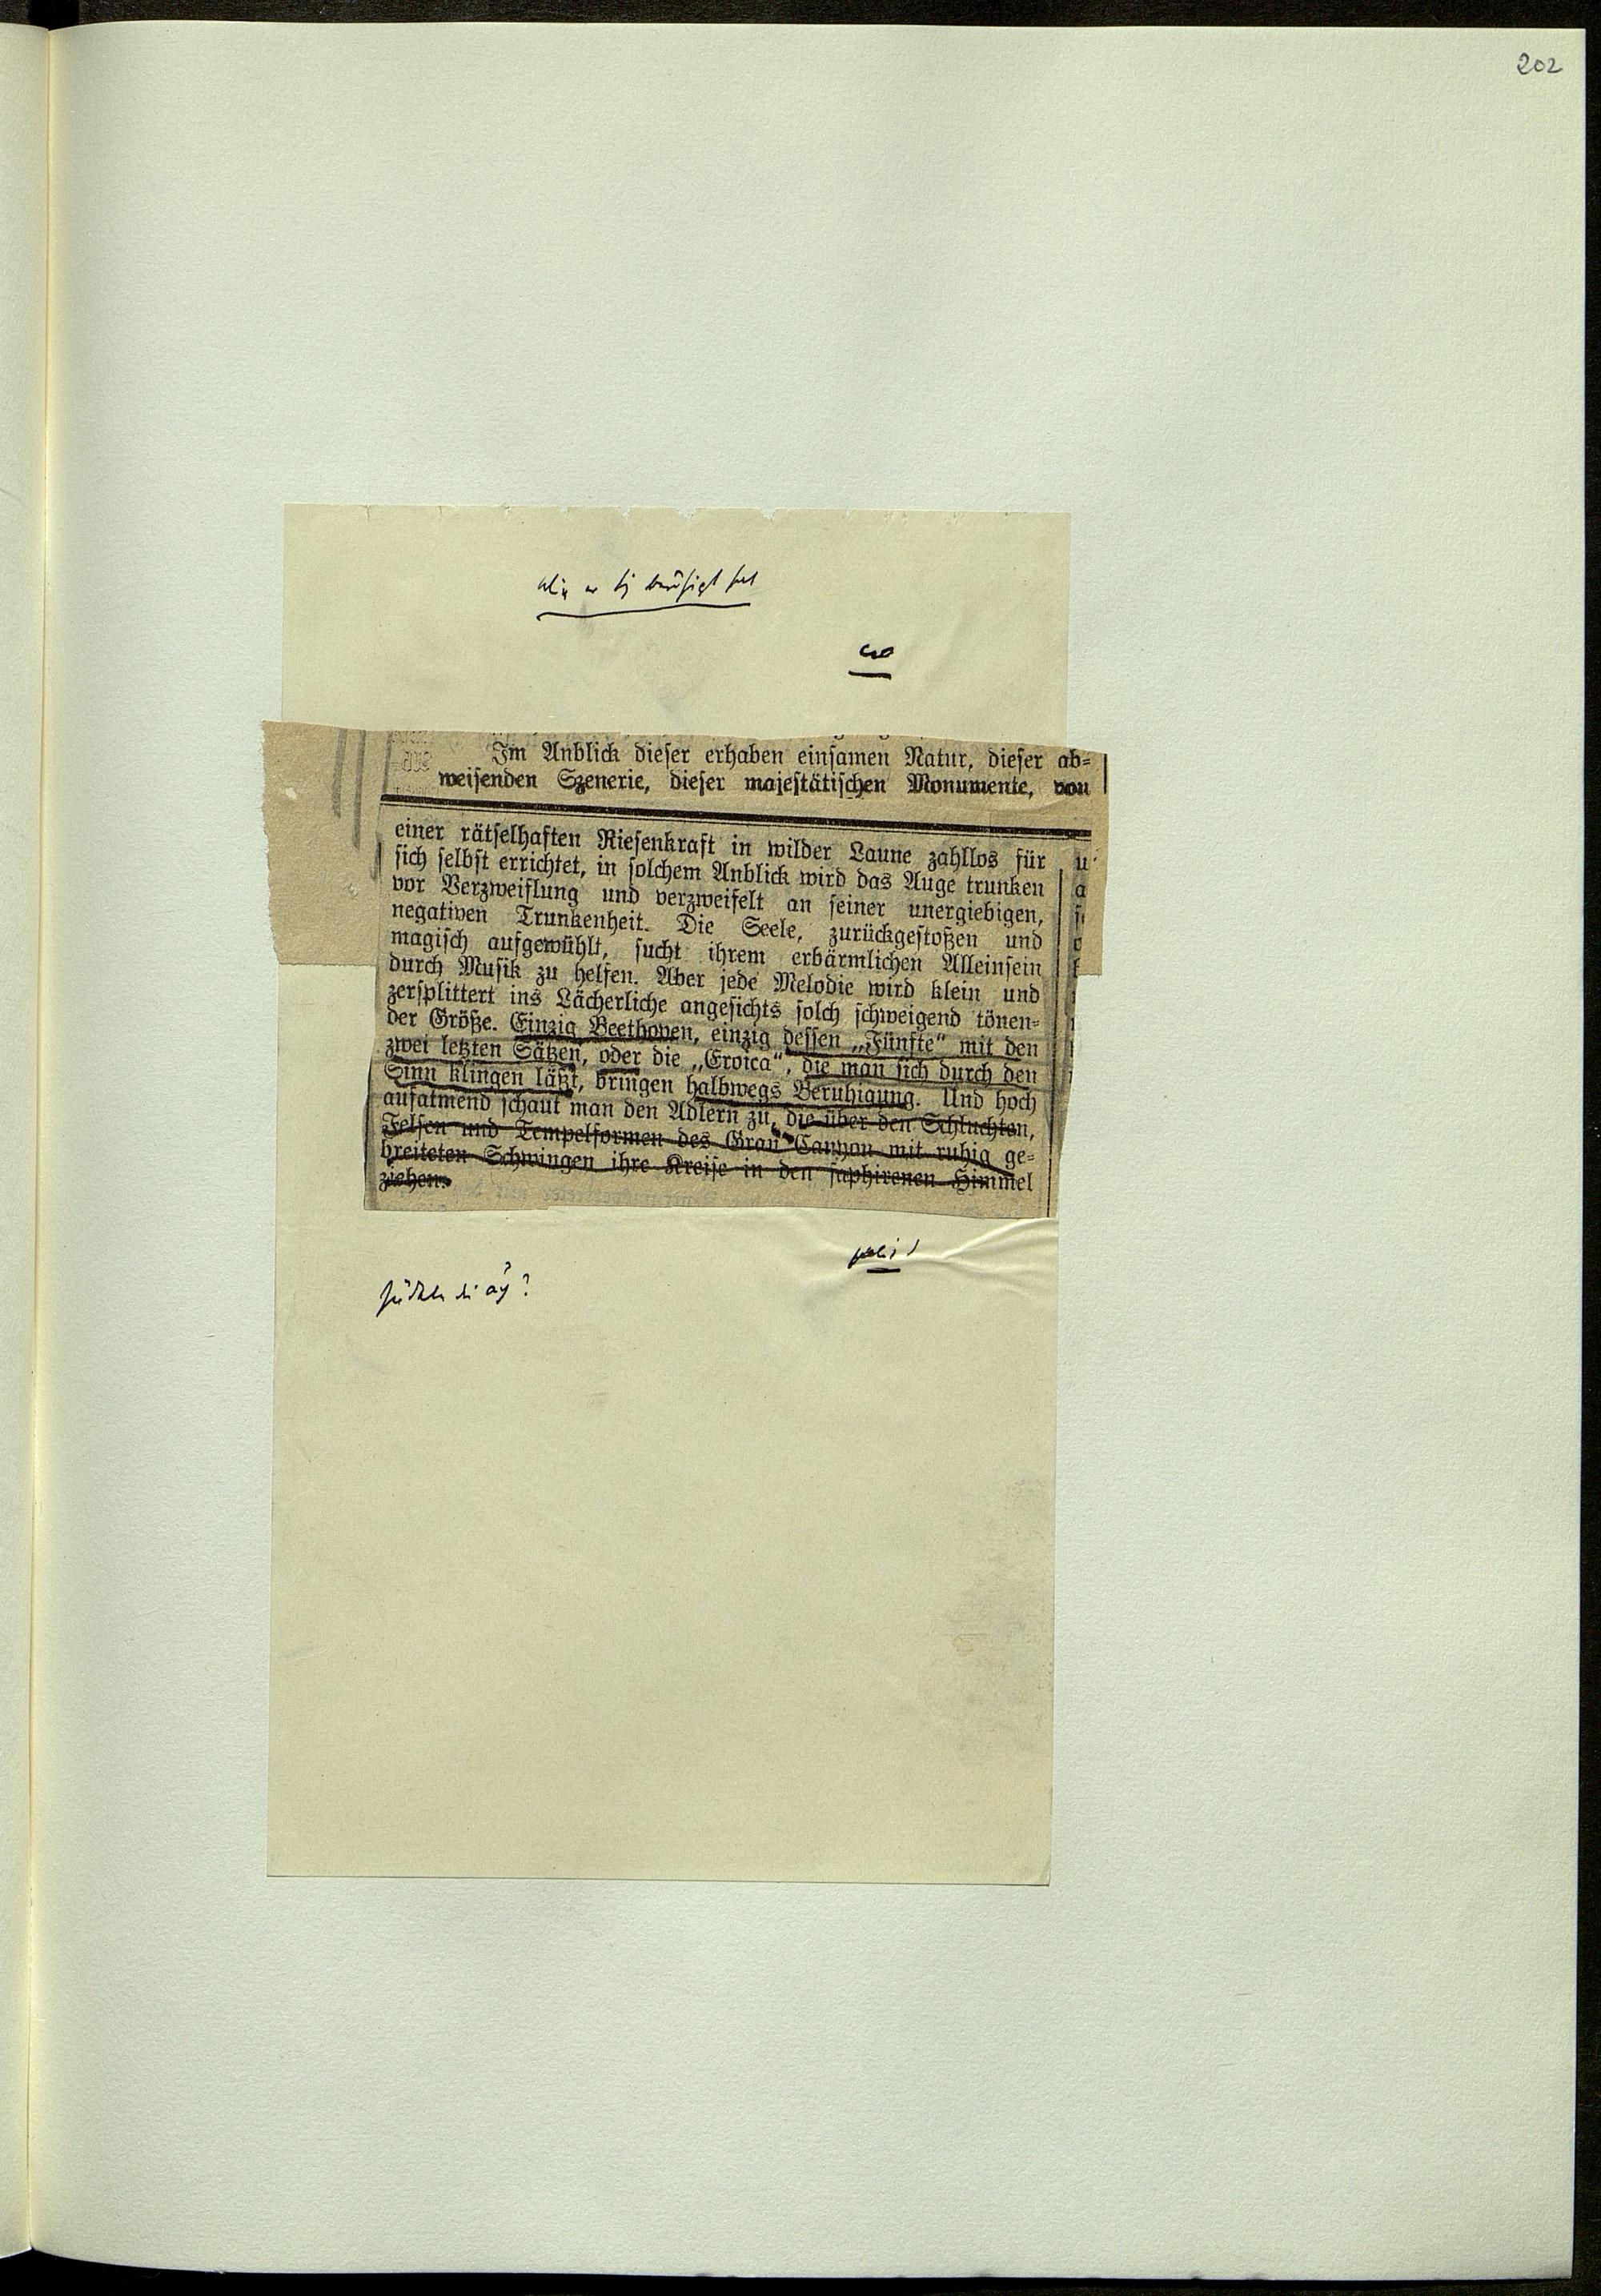 202
Wie er sich beruhigt hat
Im Anblick dieser erhaben einsamen Natur, dieser ab-
weisenden Szenerie, dieser majestätischen Monumente, von
einer rätselhaften Riesenkraft in wilder Laune zahllos für
sich selbst errichtet, in solchem Anblick wird das Auge trunken
vor Verzweiflung und verzweifelt an seiner unergiebigen,
negativen Trunkenheit. Die Seele, zurückgestoßen und
magisch aufgewühlt, sucht ihrem erbärmlichen Alleinsein
durch Musik zu helfen. Aber jede Melodie wird klein und
zersplittert ins Lächerliche angesichts solch schweigend tönen-
der Größe. Einzig Beethoven, einzig dessen „Fünfte“ mit den
zwei letzten Sätzen, oder die „Eroica“, die man sich durch den
Sinn klingen läßt, bringen halbwegs Beruhigung. Und hoch
aufatmend schaut man den Adlern zu, die über den Schluchten,
Felsen und Tempelformen des Gran Canyon mit ruhig ge-
breiteten Schwingen ihre Kreise in den saphirenen Himmel
ziehen.